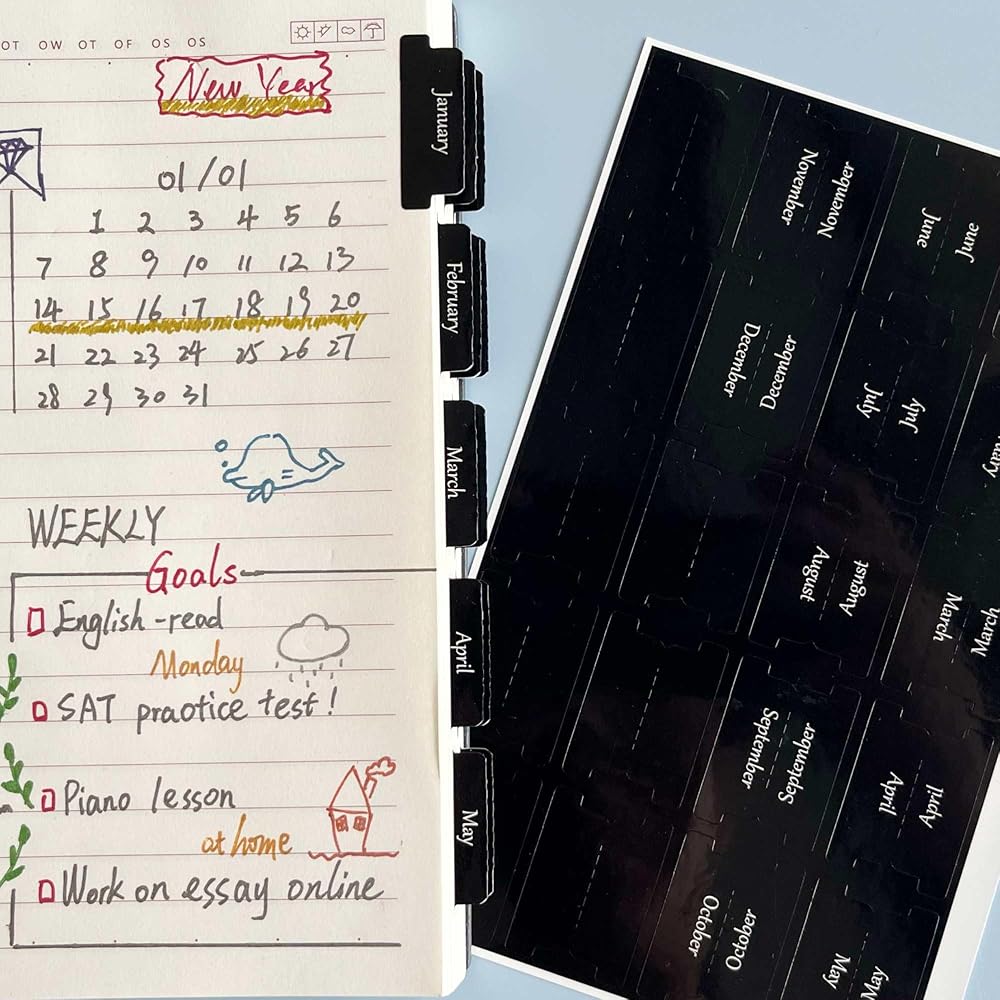 OT OW OT OF OS OS
New Year
01/01
1 2 3 4 5 6
7 8 9 10 11 12 13
14 15 16 17 18 19 20
21 22 23 24 25 26 27
28 29 30 31
WEEKLY
Goals
English-read
Monday
SAT practice test!
Piano lesson
at home
Work on essay online
January
February
March
April
May
November
November
December
December
June
June
July
July
August
August
September
September
October
October
March
March
April
April
May
May